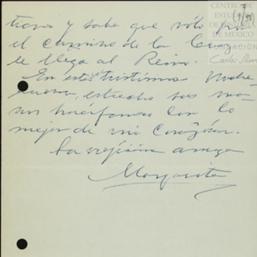 tiana y sabe que sólo por
el camino de la Cruz
se llega al Reino.
En esta tristísima Noche
buena, estrecho sus ma-
nos huérfanas con lo
mejor de mi corazón.
Su viejísima amiga
Margarita
CENTRO DE
ESTUDIOS
DE MÉXICO
Carlos